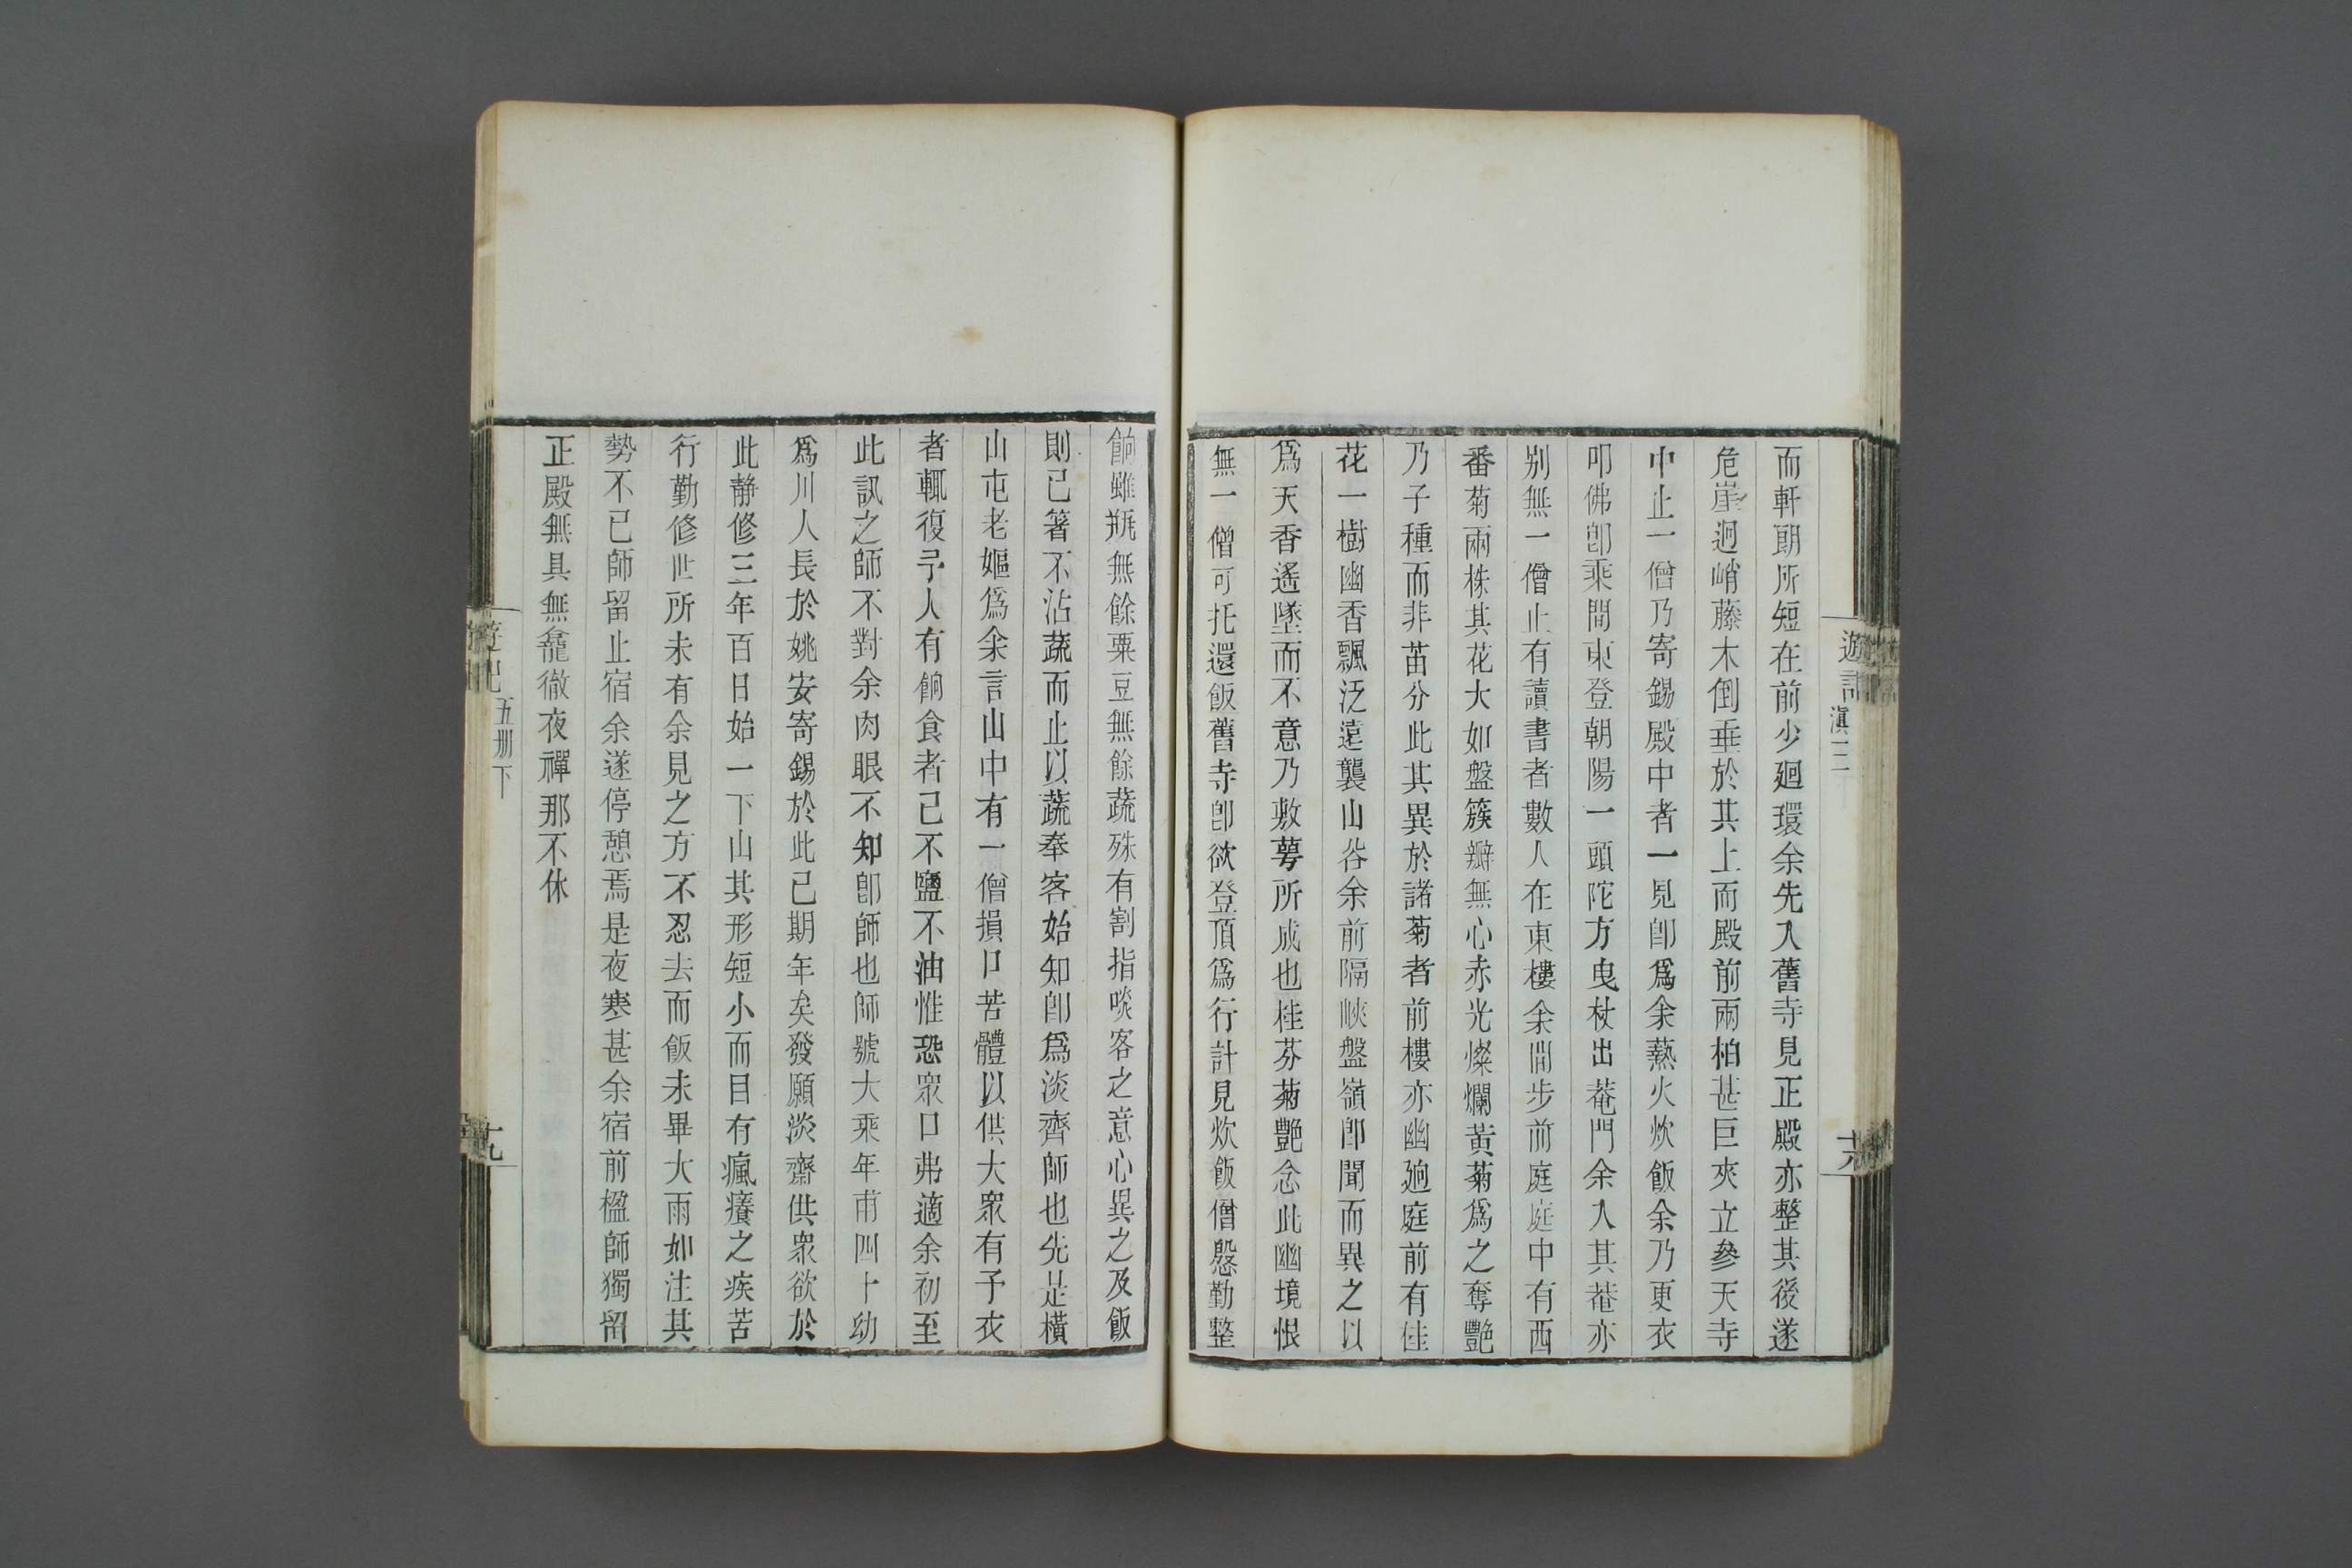 遊記
滇三
而軒朗所短在前少廻環余先入舊寺見正殿亦整其後遂
危崖逈峭藤木倒垂於其上而殿前兩柏甚巨夾立參天寺
中止一僧乃寄錫殿中者一見卽爲余爇火炊飯余乃更衣
叩佛卽乘間東登朝陽一頭陀方曳杖出菴門余入其菴亦
别無一僧止有讀書者數人在東樓余閒步前庭庭中有西
番菊兩株其花大如盤簇瓣無心赤光燦爛黃菊爲之奪艷
乃子種而非苗分此其異於諸菊者前樓亦幽逈庭前有佳
花一樹幽香飄泛遠襲山谷余前隔峽盤嶺卽聞而異之以
爲天香遙墜而不意乃敷萼所成也桂芬菊艷念此幽境恨
無一僧可托還飯舊寺卽欲登頂爲行計見炊飯僧慇勤整
餉雖瓶無餘粟豆無餘蔬殊有割指啖客之意心異之及飯
則已箸不沾蔬而止以蔬奉客始知卽爲淡齊師也先是橫
山屯老嫗爲余言山中有一僧損口苦體以供大眾有予衣
者輒復予人有餉食者己不鹽不油惟恐眾口弗適余初至
此訊之師不對余肉眼不知卽師也師號大乘年甫四十幼
爲川人長於姚安寄錫於此已期年矣發願淡齋供眾欲於
此静修三年百日始一下山其形短小而目有瘋癢之疾苦
行勤修世所未有余見之方不忍去而飯未畢大雨如注其
勢不已師留止宿余遂停憩焉是夜寒甚余宿前楹師獨留
正殿無具無龕徹夜禪那不休
五册下
十九